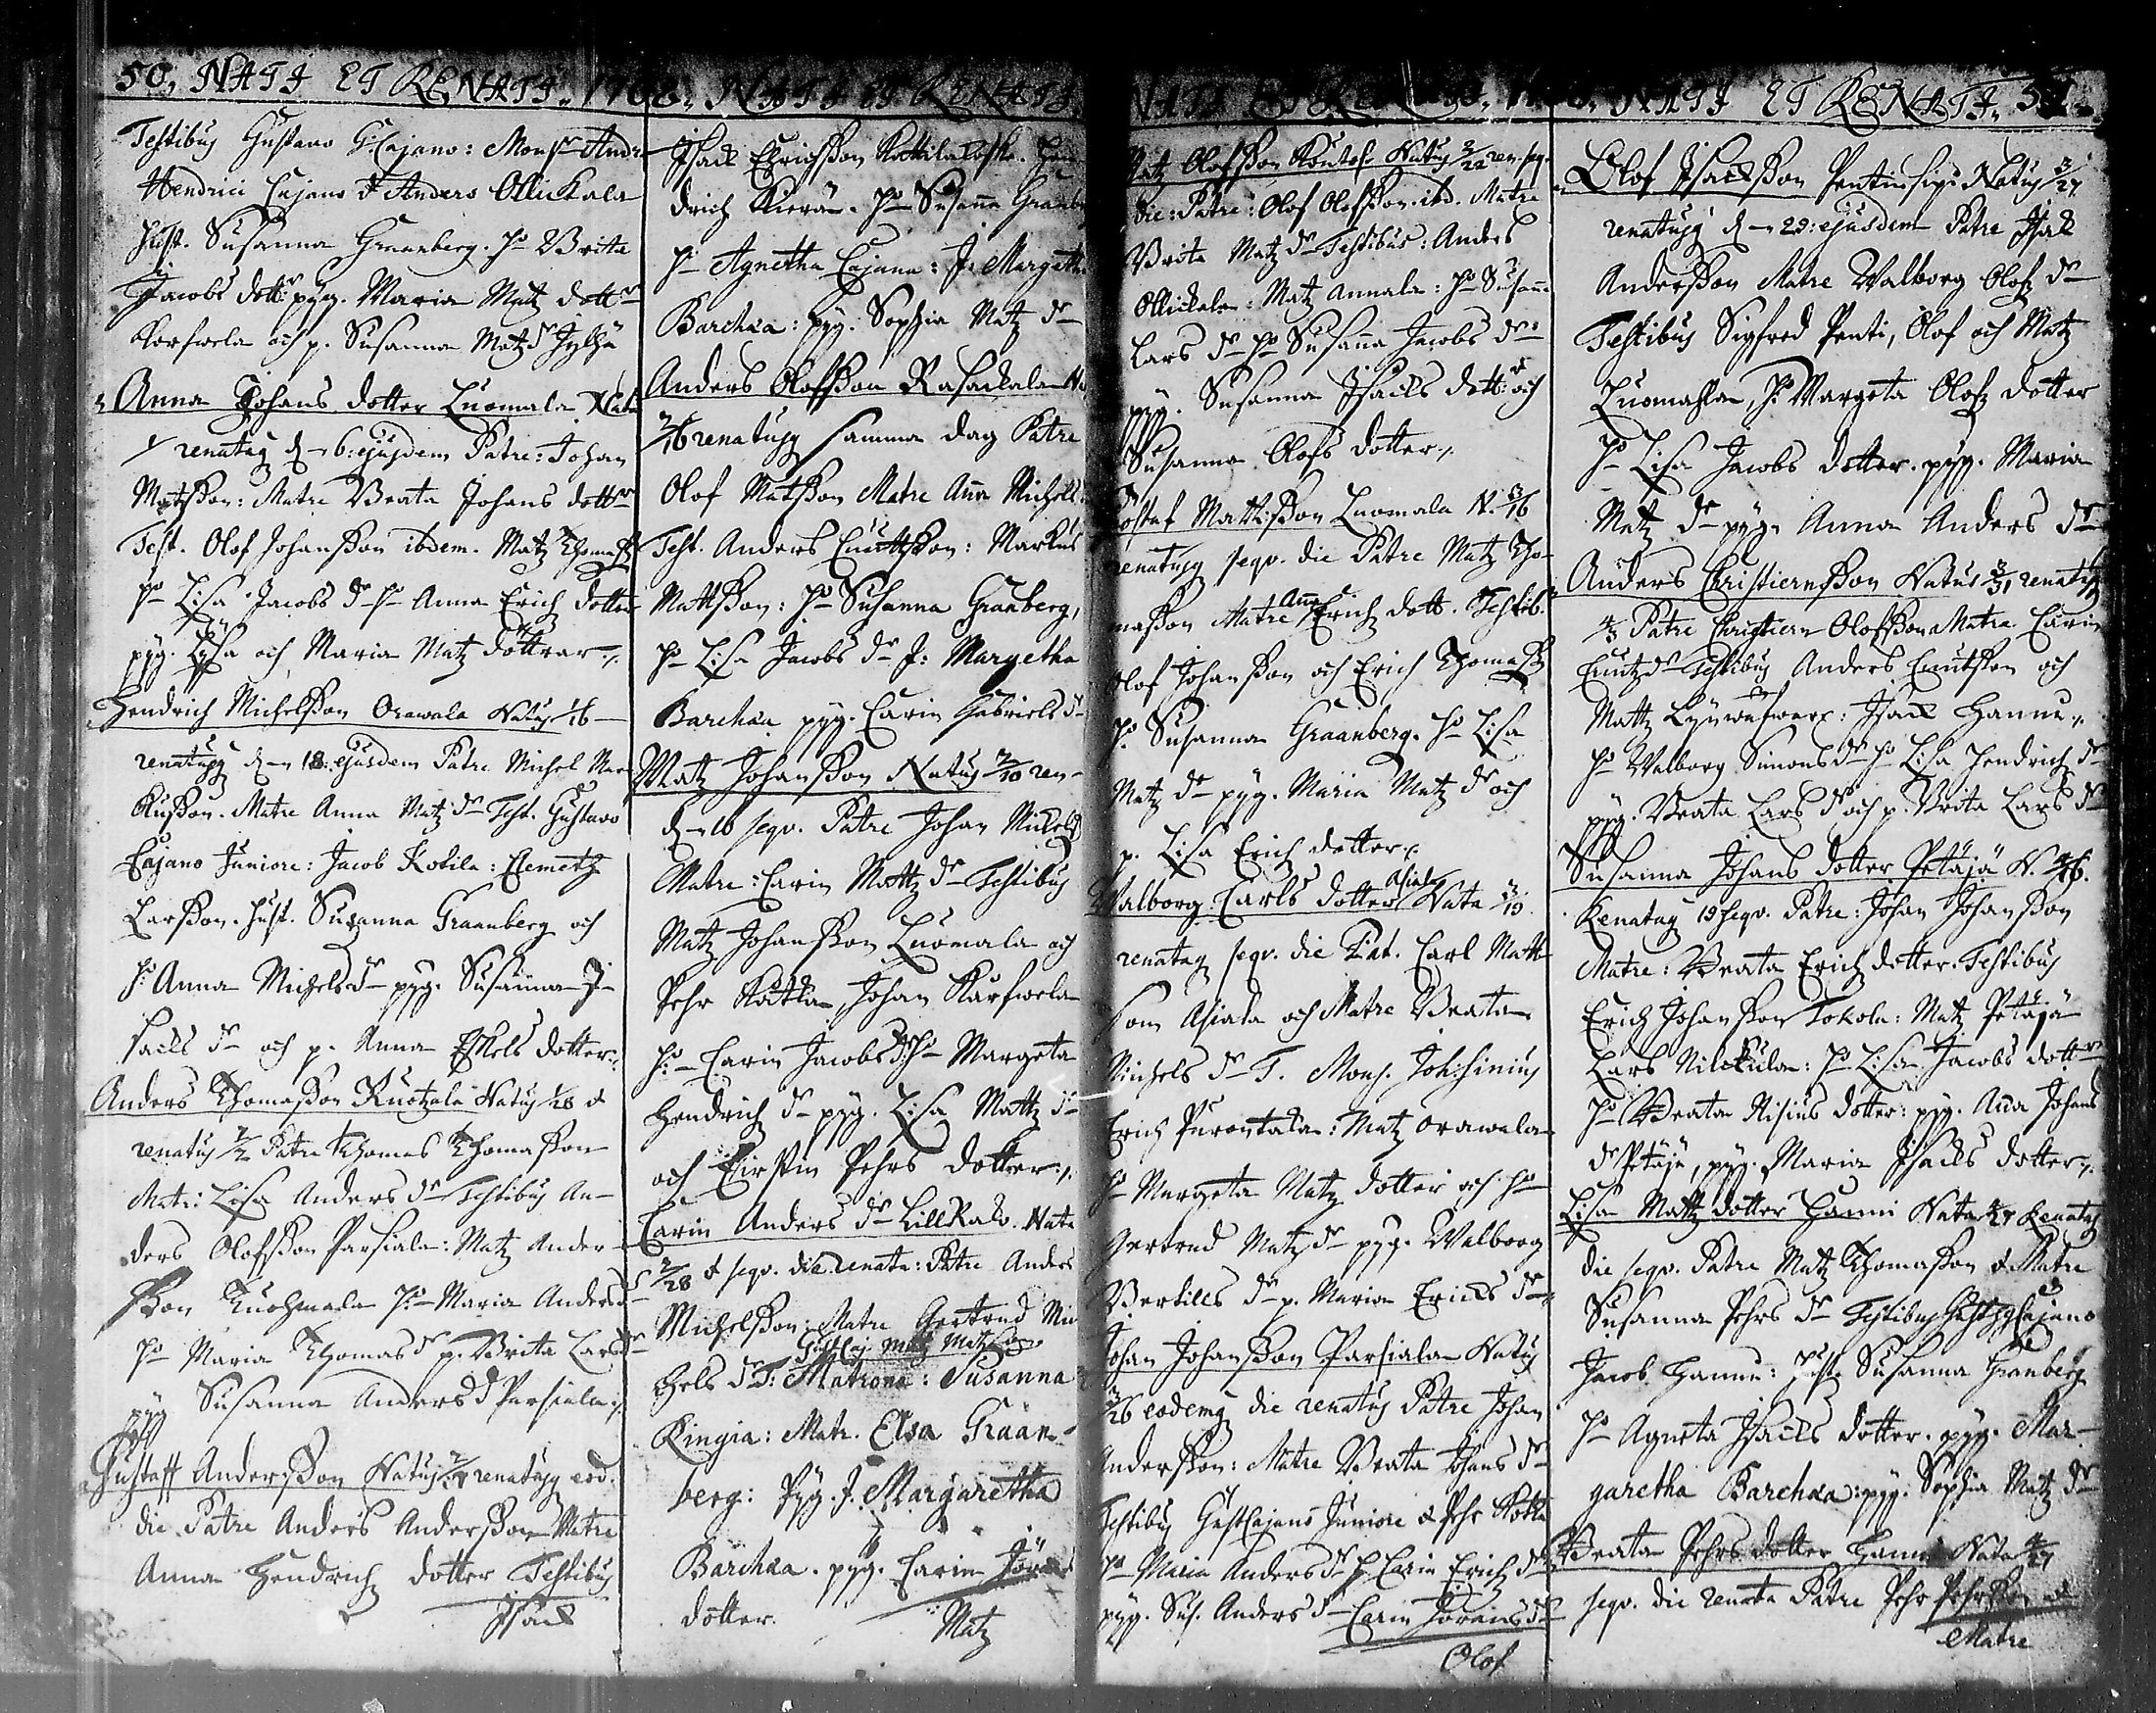 50. NATI ET RENATI. 1708. NATI ET RENATI
Testibus Gustavo G: Cajano: Mons:r Andr.
Hendrici Cajano & Anders Ollickala
hust. Susanna Graanberg. h:o Britta
Jacobs dott:r pyg. Maria Matz dott:r
Korfwela och p. Susanna Matz d:r Jylhä
Anna Johans dotter Luomala Nata
renatus d. 6: ejusdem Patre: Johan
Matzson: Matre Beata Johans dott:r
Test. Olof Johansson ibdem. Matz Thomass.
h:o Lisa Jacobs d:r h:o Anna Erichz dotter
pyg. Lisa och Maria Matz döttrar
Hendrich Michelsson Orawala Natus 1/16
renatus d. 18. ejusdem Patre Michel Mar-
kusson. Matre Anna Matz d:r Test. Gustavo
Cajano Juniore: Jacob Kotila: Clemetz
Larsson. hust. Susanna Graanberg och
h:o Anna Michels d:r pyg. Susanna I-
sacks d:r och p. Anna Eskels dotter
Anders Thomasson Ruotzala Natus 1/28 &
renatus 2/2 Patre Thomas Thomasson
Matr: Lisa Anders d:r Testibus An-
ders Olofsson Parsiala: Matz Anders-
son Kuohmala h:o Maria Anders d:r
h:o Maria Thomas d:r p. Brita Lars d:r
pyg Susanna Anders d:r Parsiala
Gustaff Andersson Natus renatus eod.
die Patre Anders Andersson Matre
Anna Hendrichz dotter Testibus
Isack
Isack Erichsson Kottilakoski. Hen-
drich Kierä. h:o Susanna Graanb
h:o Agnetha Cajana: J: Margetha
Barchaa: pyg. Sophia Matz d:r
Anders Olofsson Rasackala Na
2/16 renatus samma dag Patre
Olof Matsson Matre Anna Michels
Test. Anders Cnutsson: Markus
Mattsson: h:o Susanna Granberg,
h:o Lisa Jacobs d:r J: Margetha
Barchaa pyg. Carin Gabriels d:r
Matz Johansson Natus 2/10 ren-
d. 16 seqv. Patre Johan Michels
Matre: Carin Mattz d:r Testibus
Matz Johansson Luomala och
Pehr Kåtka, Johan Karfwela
h:o Carin Jacobs d:r h:o Margeta
Hendrich d:r pyg. Lisa Mattz d:r
och Kirstin Pehrs dotter
Carin Anders d:r Lillkalo. Nata
2/28 & seqv. die renata: Patre Anders
Michelsson: Matre Gertrud Mi-
chels d:r T: Matrona: Susanna
Kingia: Matr. Elsa Graan-
berg: Pyg. J. Margaretha
Barchaa. pyg. Carin Jörans
dotter.
Matz
NATI ET RENATI. 1708. NATI ET RENATI. 51.
Matz Olofsson Koutofs Natus 2/22 ren. seq.
die: Patre: Olof Olofsson. ibd. Matre
Brita Matz d:r Testibus: Anders
Ollickala: Matz Annala: h:o Susanna
Lars d:r h:o Susanna Jacobs d:r
pyg. Susanna Isacks dott:r och
Susanna Olofs dotter
Gustaf Mattsson Luomala N. 3/16
renatus seqv. die Patre Matz Tho-
masson Matre Anna Erichz dott. Testib.
Olof Johansson och Erich Thomass.
h:o Susanna Graanberg. h:o Lisa
Matz d:r pyg. Maria Matz d:r och
p. Lisa Erich dotter
Walborg Carls dotter Asiala Nata 3/19.
renatus seqv. die Pat. Carl Matts
son Asiala och Matre Beata
Michels d:r T. Mons. Joh: finius
Erich Purontaka: Matz Orawala
h:o Margeta Matz dotter och h:o
Gertrud Matz d:r pyg. Walborg
Bertills d:r p. Maria Erichs d:r
Johan Johansson Parsiala Natus
3/26 eodemq die renatus Patre Johan
Andersson: Matre Beata Johans d:r
Testibus Gust Cajano Juniore & Pehr Kotka
h:o Maria Anders d:r h. Carin Erich d:r
pyg. Sus. Anders d:r Carin Jörans d:r
Olof
Olof Isacksson Pentinsips Natus 3/27
renatus d. 29: ejusdem Patre Isak
Andersson Matre Walborg Olofz d:r
Testibus Sigfred Penti, Olof och Matz
Luomahla, h:o Margeta Olofz dotter
h:o Lisa Jacobs dotter. pyg. Maria
Matz d:r pyg. Anna Anders d:r
Anders Christiernsson Natus 3/31 renatus
4/3 Patre Christiern Olofsson Matre Carin
Cnutz d:r Testibus Anders Cnutsson och
Mattz: Isack Hannu
h:o Walborg Simons d:r h:o Lisa Hendrich d:r
pyg. Beata Lars d:r och p. Brita Lars d:r
Susanna Johans dotter Petäjä N. 4/16.
Renatus 19 seqv. Patre: Johan Johansson
Matre: Beata Erich dotter. Testibus
Erich Johansson Tokola: Matz Petäjä
Lars Nilckula: h:o Lisa Jacobs dott:r
h:o Beata Nisius dotter: pyg. Anna Johans
d:r Petäjä, pyg. Maria Isacks dotter
Lisa Mattz dotter Hanni Nata 4/27 Renatus
die seqv. Patre Matz Thomasson & Matre
Susanna Pehrs d:r Testibus Gust: Cajano
Jacob Hannu: hust. Susanna Granberg
h:o Agneta Isacks dotter. pyg. Mar-
garetha Barchaa: pyg. Sophia Matz d:r
Beata Pehrs dotter Hanni Nata 4/27
seqv. die renata Patre Pehr Pehrsson &
Matre